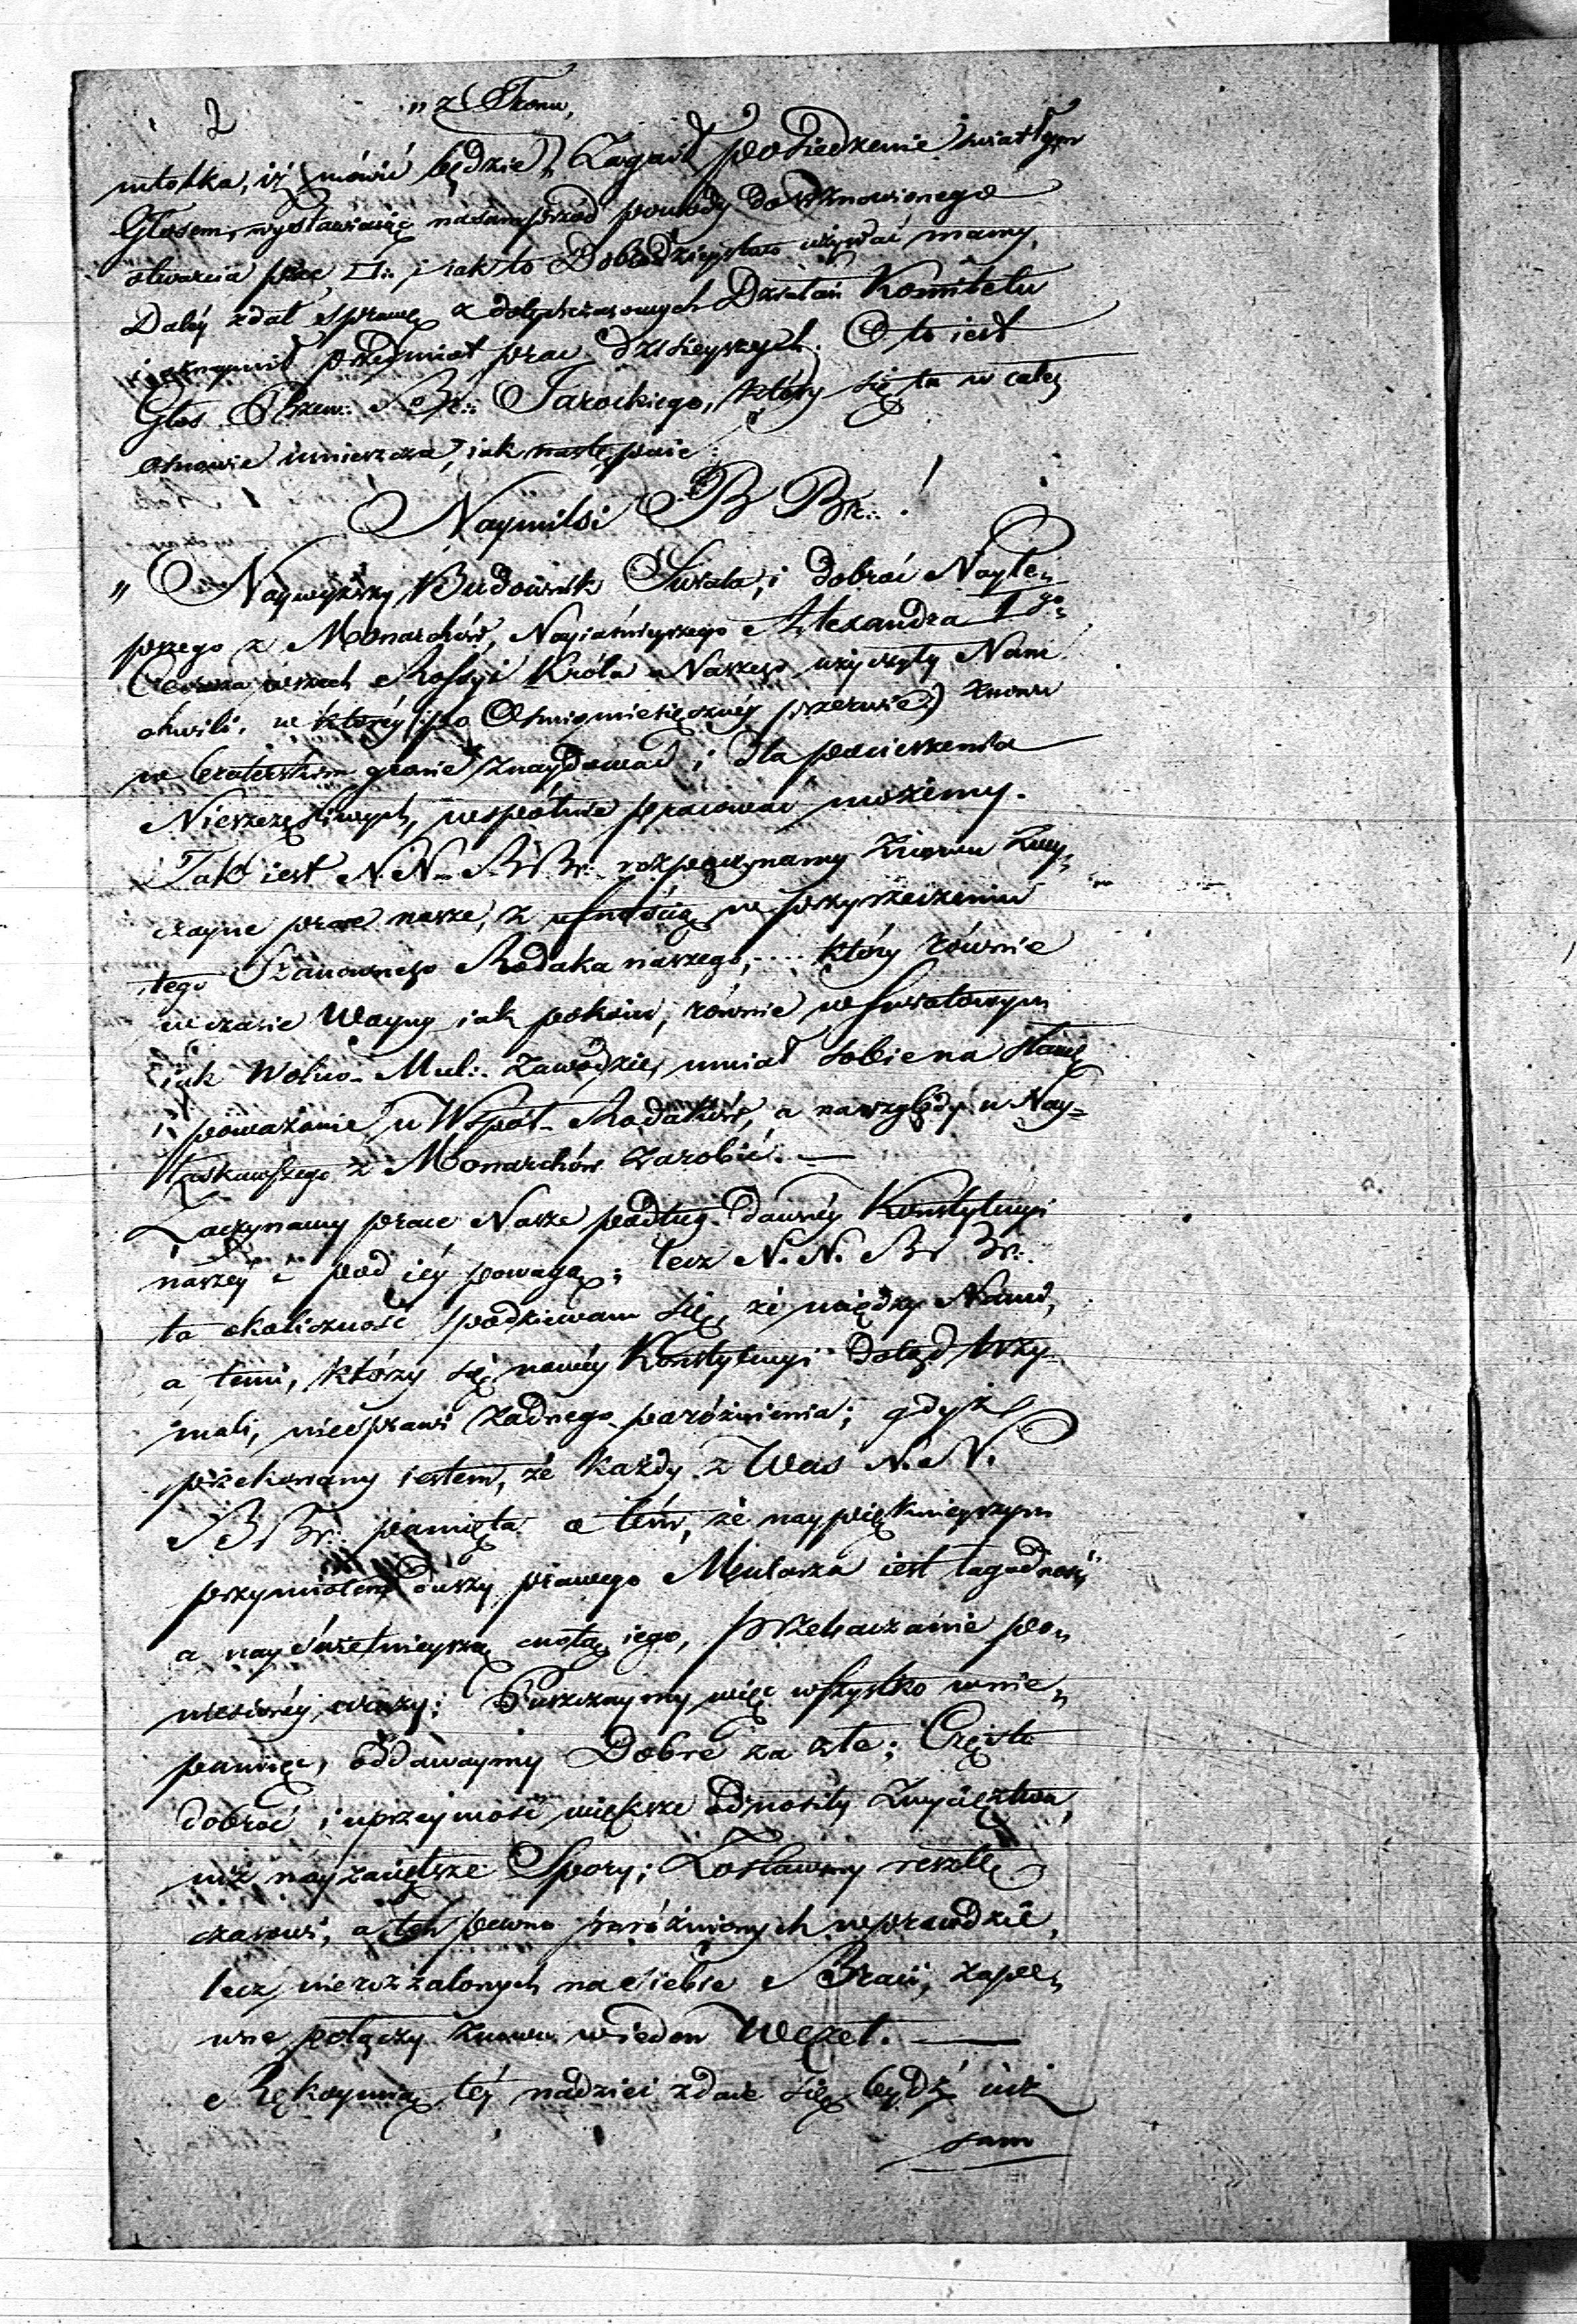 2
" z Tronu,
młotka, iż mówić będzie, Zagaił posiedzenie światłym
Głosem, wystawiaiąc nasamprzód powody do wznowionego
otwarcia prac i iak to Dobrodzieystwo używać mamy,
Daléy zdał sprawę z dotychczasowych Działań Komitetu
i oznaymił przedmiot prac dzisieyszych. Oto iest
Głos Przew: N: Br: Jarockiego, który się tu w całey
osnowie umieszcza, iak następuie:
Naymilsi B Br:. !
" Naywyższy Budownik Świata, i dobroć Naylep„
pszego z Monarchów, Nayiaśnieyszego Alexandra 1go„
Cesarza wszech Rossyi Króla Naszego użyczyły Nam
chwili, w któréy (po Ośmiomiesięcznéy przerwie) znowu
w braterskim gronie znaydować i dla pocieszenia
Nieszczęśliwych, wspólnie pracować możemy.
Tak iest N. N. B Br: rozpoczynamy znowu zwy„
czayne prace nasze, z ufnością w przyrzeczeniu
tego Szanownego Rodaka naszego, .... który równie
w czasie Woyny iak pokoiu, równie w światowym
iak Wolno-Mul:. zawodzie, umiał sobie na sławę
i poważanie u Współ-Rodaków, a na względy u Nay=
łaskawszego z Monarchów zarobić. —
Zaczynamy prace Nasze podług dawnéy Konstytucyi
naszéy i pod iéy powagą; lecz N. N. B Br:.
ta okoliczność spodziewam się, że między Nami,
a temi, którzy się nowéy Konstytucyi dotąd trzy„
mali, niesprawi żadnego poróżnienia; gdyż
przekonany iestem, że każdy z Was N. N.
B Br: pamięta o tém, że naypięknieyszym
przymiotem duszy prawego Mularza iest łagodność,
a nayświetnieyszą cnotą iego, przebaczanie po„
niesionéy urazy; Puszczaymy więc wszystko w nie„
pamięć, oddawaymy Dobre za złe; Często
dobroć i uprzeymość większe odnosiły zwycięztwa,
niż nayzaciętsze Spory; Zostawmy resztę
czasowi, a ten pewno poróżnionych wprawdzie,
lecz nierozżalonych na siebie Braci, zape„
wne połączy znowu w ieden Węzeł. —
Rękoymią téy nadziei zdaie się bydź iuż
sam